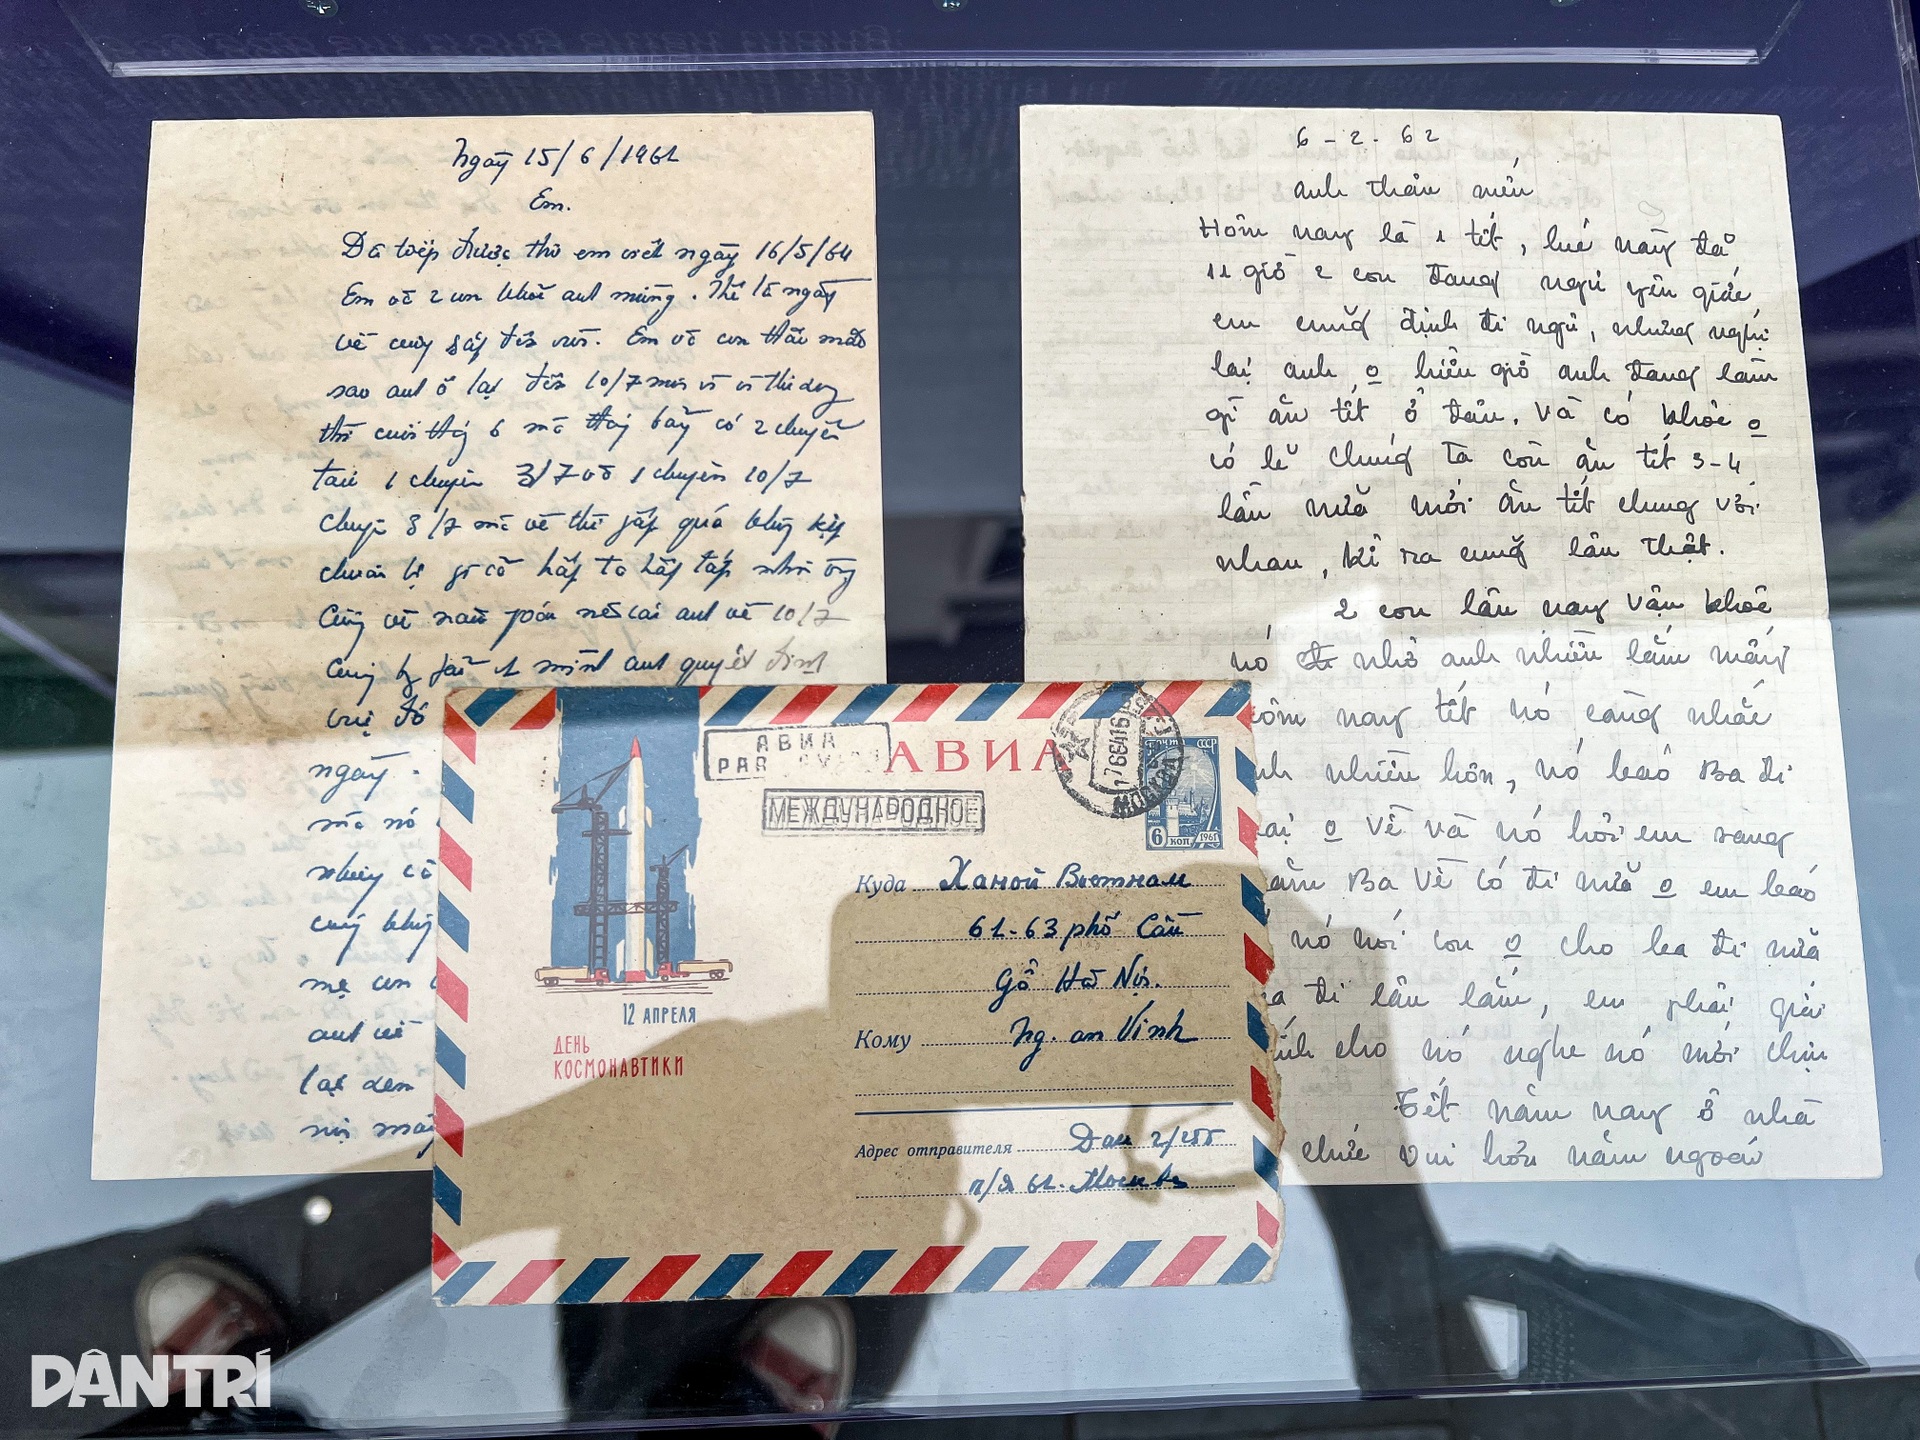 Ngày 15/6/1964
Em.
Đã tiếp được thư em viết ngày 16/5/64
Em và 2 con khỏe anh mừng. Thế là ngày
về cũng sắp đến rồi. Em và con thắc mắc
sao anh ở lại đến 10/7 mới về vì thi xong
thì cuối tháng 6 mà tháng bảy có 2 chuyến
tàu 1 chuyến 3/7 và 1 chuyến 10/7
chuyến 3/7 mà về thì gấp quá không kịp
chuẩn bị gì cả hấp ta hấp tấp
10/7
anh quyết định
việc đó
ngày
mà nó
những cô
cũng không
mẹ con
anh về
lại đem
6-2-62
anh thân mến
Hôm nay là 1 tết, lúc này đã
11 giờ 2 con đang ngủ yên giấc
em cũng định đi ngủ, nhưng nghĩ
lại anh o hiểu giờ anh đang làm
gì ăn tết ở đâu. Và có khỏe o
có lẽ chúng ta còn ăn tết 3-4
lần nữa mới ăn tết chung với
nhau, kể ra cũng lâu thật.
2 con lâu nay vẫn khỏe
nó nhớ anh nhiều lắm mấy
hôm nay tết nó càng nhắc
nhiều hơn, nó bảo Ba đi
o về và nó hỏi em rằng
Ba về có đi nữa o em bảo
nó nói con o cho ba đi nữa
đi lâu lắm, em phải giải
cho nó nghe nó mới chịu
Tết năm nay ở nhà
chức vui hơn năm ngoái
АВИА
PAR AVION
АВИА
МЕЖДУНАРОДНОЕ
МОСКВА
ПОЧТА СССР
6 КОП 1961
Куда Ханой Вьетнам
61-63 phố Cầu
Gỗ Hà Nội.
Кому Ng. an Vinh
12 АПРЕЛЯ
ДЕНЬ
КОСМОНАВТИКИ
Адрес отправителя Dan 2/255
п/я 61. Москва
DÂN TRÍ